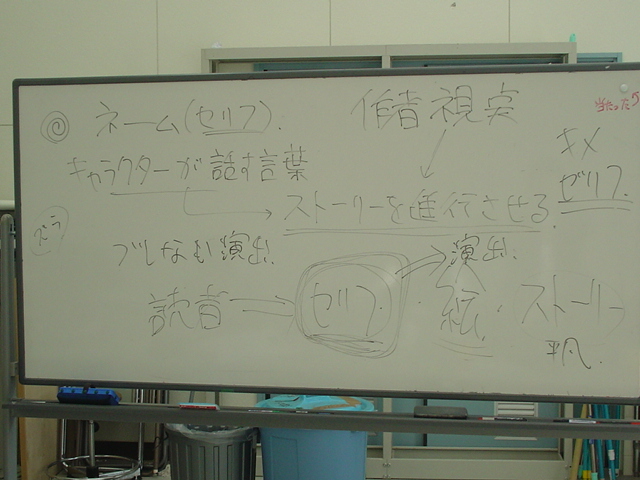 ネーム(セリフ).
作者視実
当たった
キメ
ゼリフ
キャラクターが話す言葉
ストーリーを進行させる.
演出.
演出.
読者
セリフ.
絵.
ストーリー
平凡.